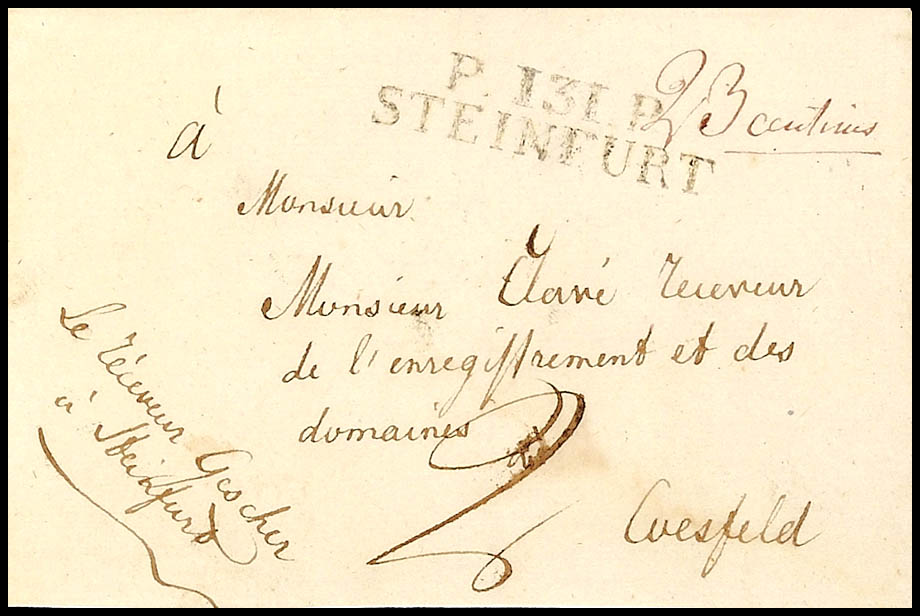 P. 131. P.
STEINFURT
23 centimes
à
Monsieur
Monsieur receveur
de l'enregistrement et des
domaines
2
Coesfeld
Le réceveur Gescher
à Steinfurt